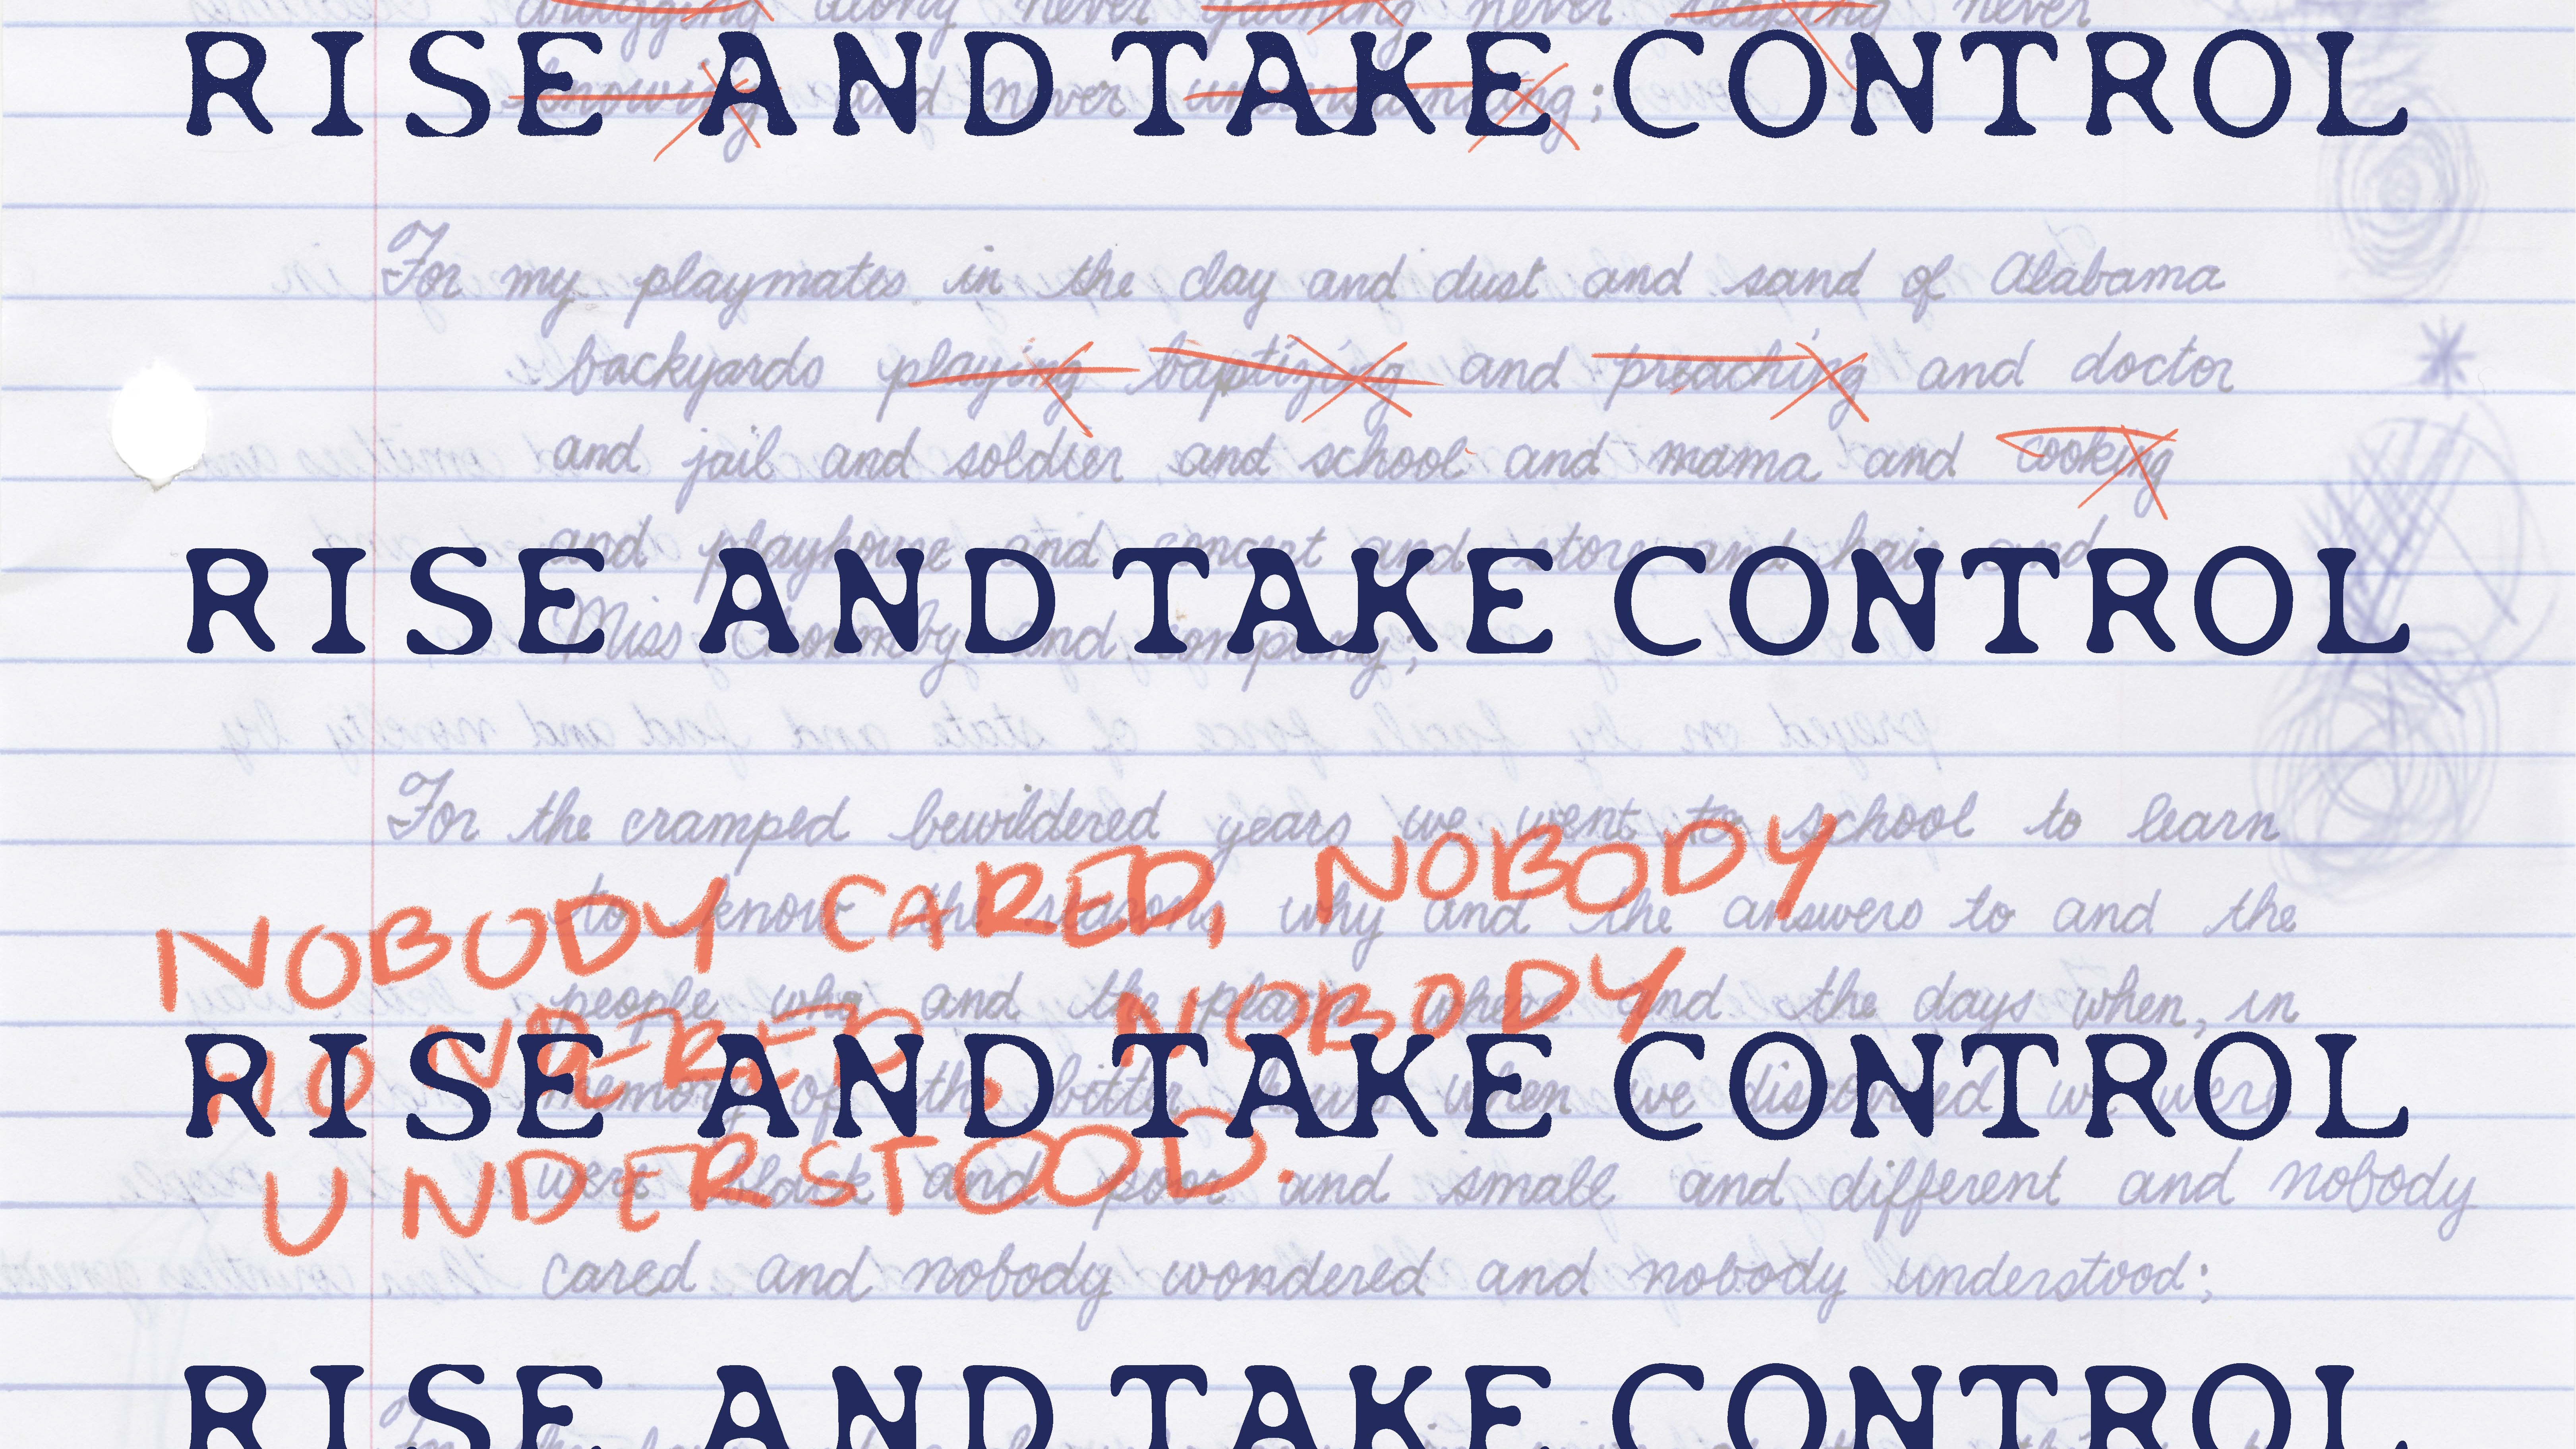 dragging along never gaining never reaping never
RISE AND TAKE CONTROL
knowing and never understanding;
For my playmates in the clay and dust and sand of Alabama
backyards playing baptizing and preaching and doctor
and jail and soldier and school and mama and cooking
and playhouse and concert and store and hair and
RISE AND TAKE CONTROL
Miss Choomby and company;
For the cramped bewildered years we went to school to learn
NOBODY CARED, NOBODY
to know the reasons why and the answers to and the
people who and the places where and the days when, in
WONDERED. NOBODY
RISE AND TAKE CONTROL
memory of the bitter hours when we discovered we were
UNDERSTOOD.
were black and poor and small and different and nobody
cared and nobody wondered and nobody understood;
RISE AND TAKE CONTROL